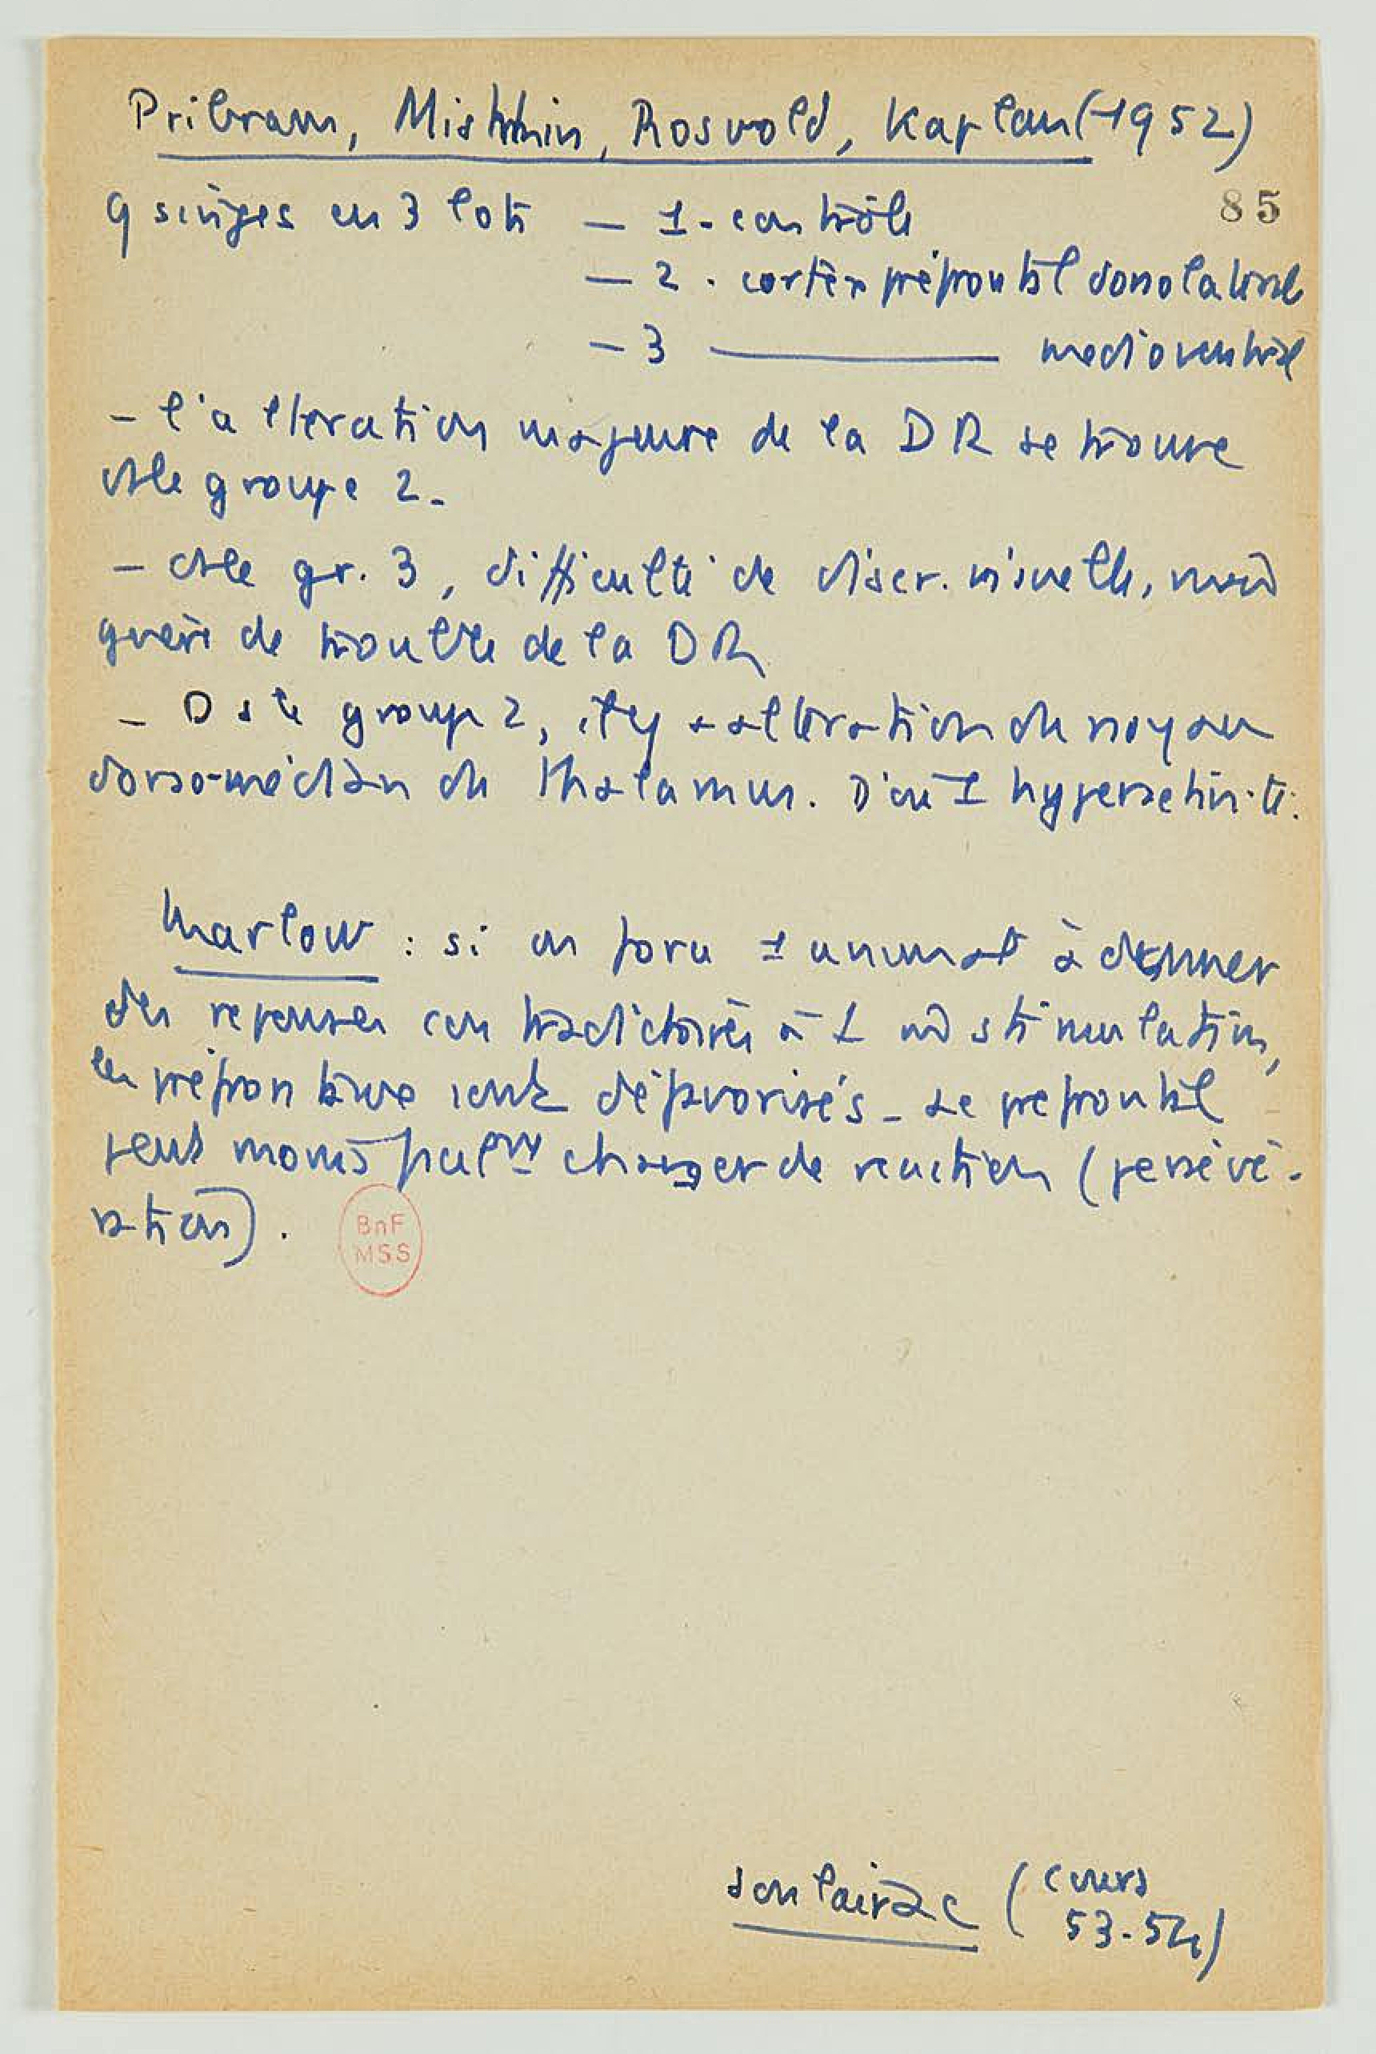 Pribram, Mishkin, Rosvold, Kaplan (1952)
85
9 singes en 3 lots — 1 - contrôle
— 2 . cortex préfrontal dorsolatéral
— 3 ——— medioventral
— l'alteration majeure de la DR se trouve
ds le groupe 2 -
— ds le gr. 3, difficulté de discr. visuelle, mais
guère de trouble de la DR
— Ds le groupe 2, il y a altération du noyau
dorso-médian du thalamus. D'où 1 hyperactivité.
Marlow : si on force 1 animal à donner
des reponses contradictoires à 1 m̂ stimulation,
les préfrontaux sont défavorisés - Le prefrontal
peut moins facil<sup>mt</sup> changer de reaction (persévé-
ration).
BnF
MSS
Soulairac (cours
53-54)